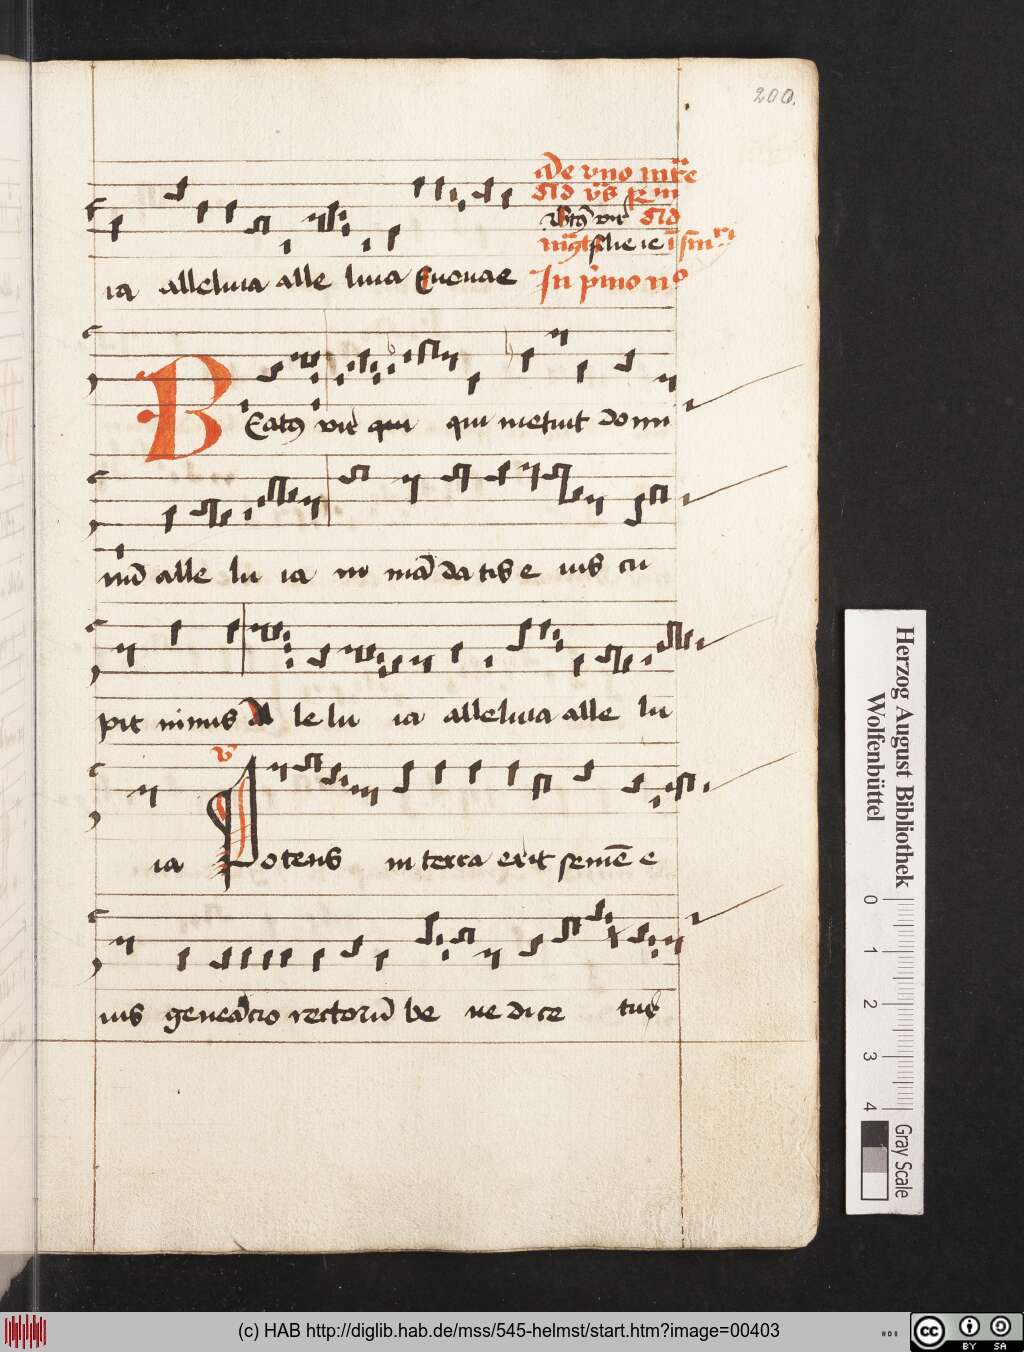 200.
De vno mr̄e
ia alleluia alle luia Euouae
In p̄mo no
BEatꝰ vir qui qui metuit domi
nū alle lu ia in mādatis e ius cu
pit nimis Al le lu ia alleluia alle lu
v
ia Potens in terra erit semē e
ius geneācio rectorū be ne dice tur
Herzog August Bibliothek
Wolfenbüttel
0 1 2 3 4
Gray Scale
(c) HAB http://diglib.hab.de/mss/545-helmst/start.htm?image=00403
cc BY SA